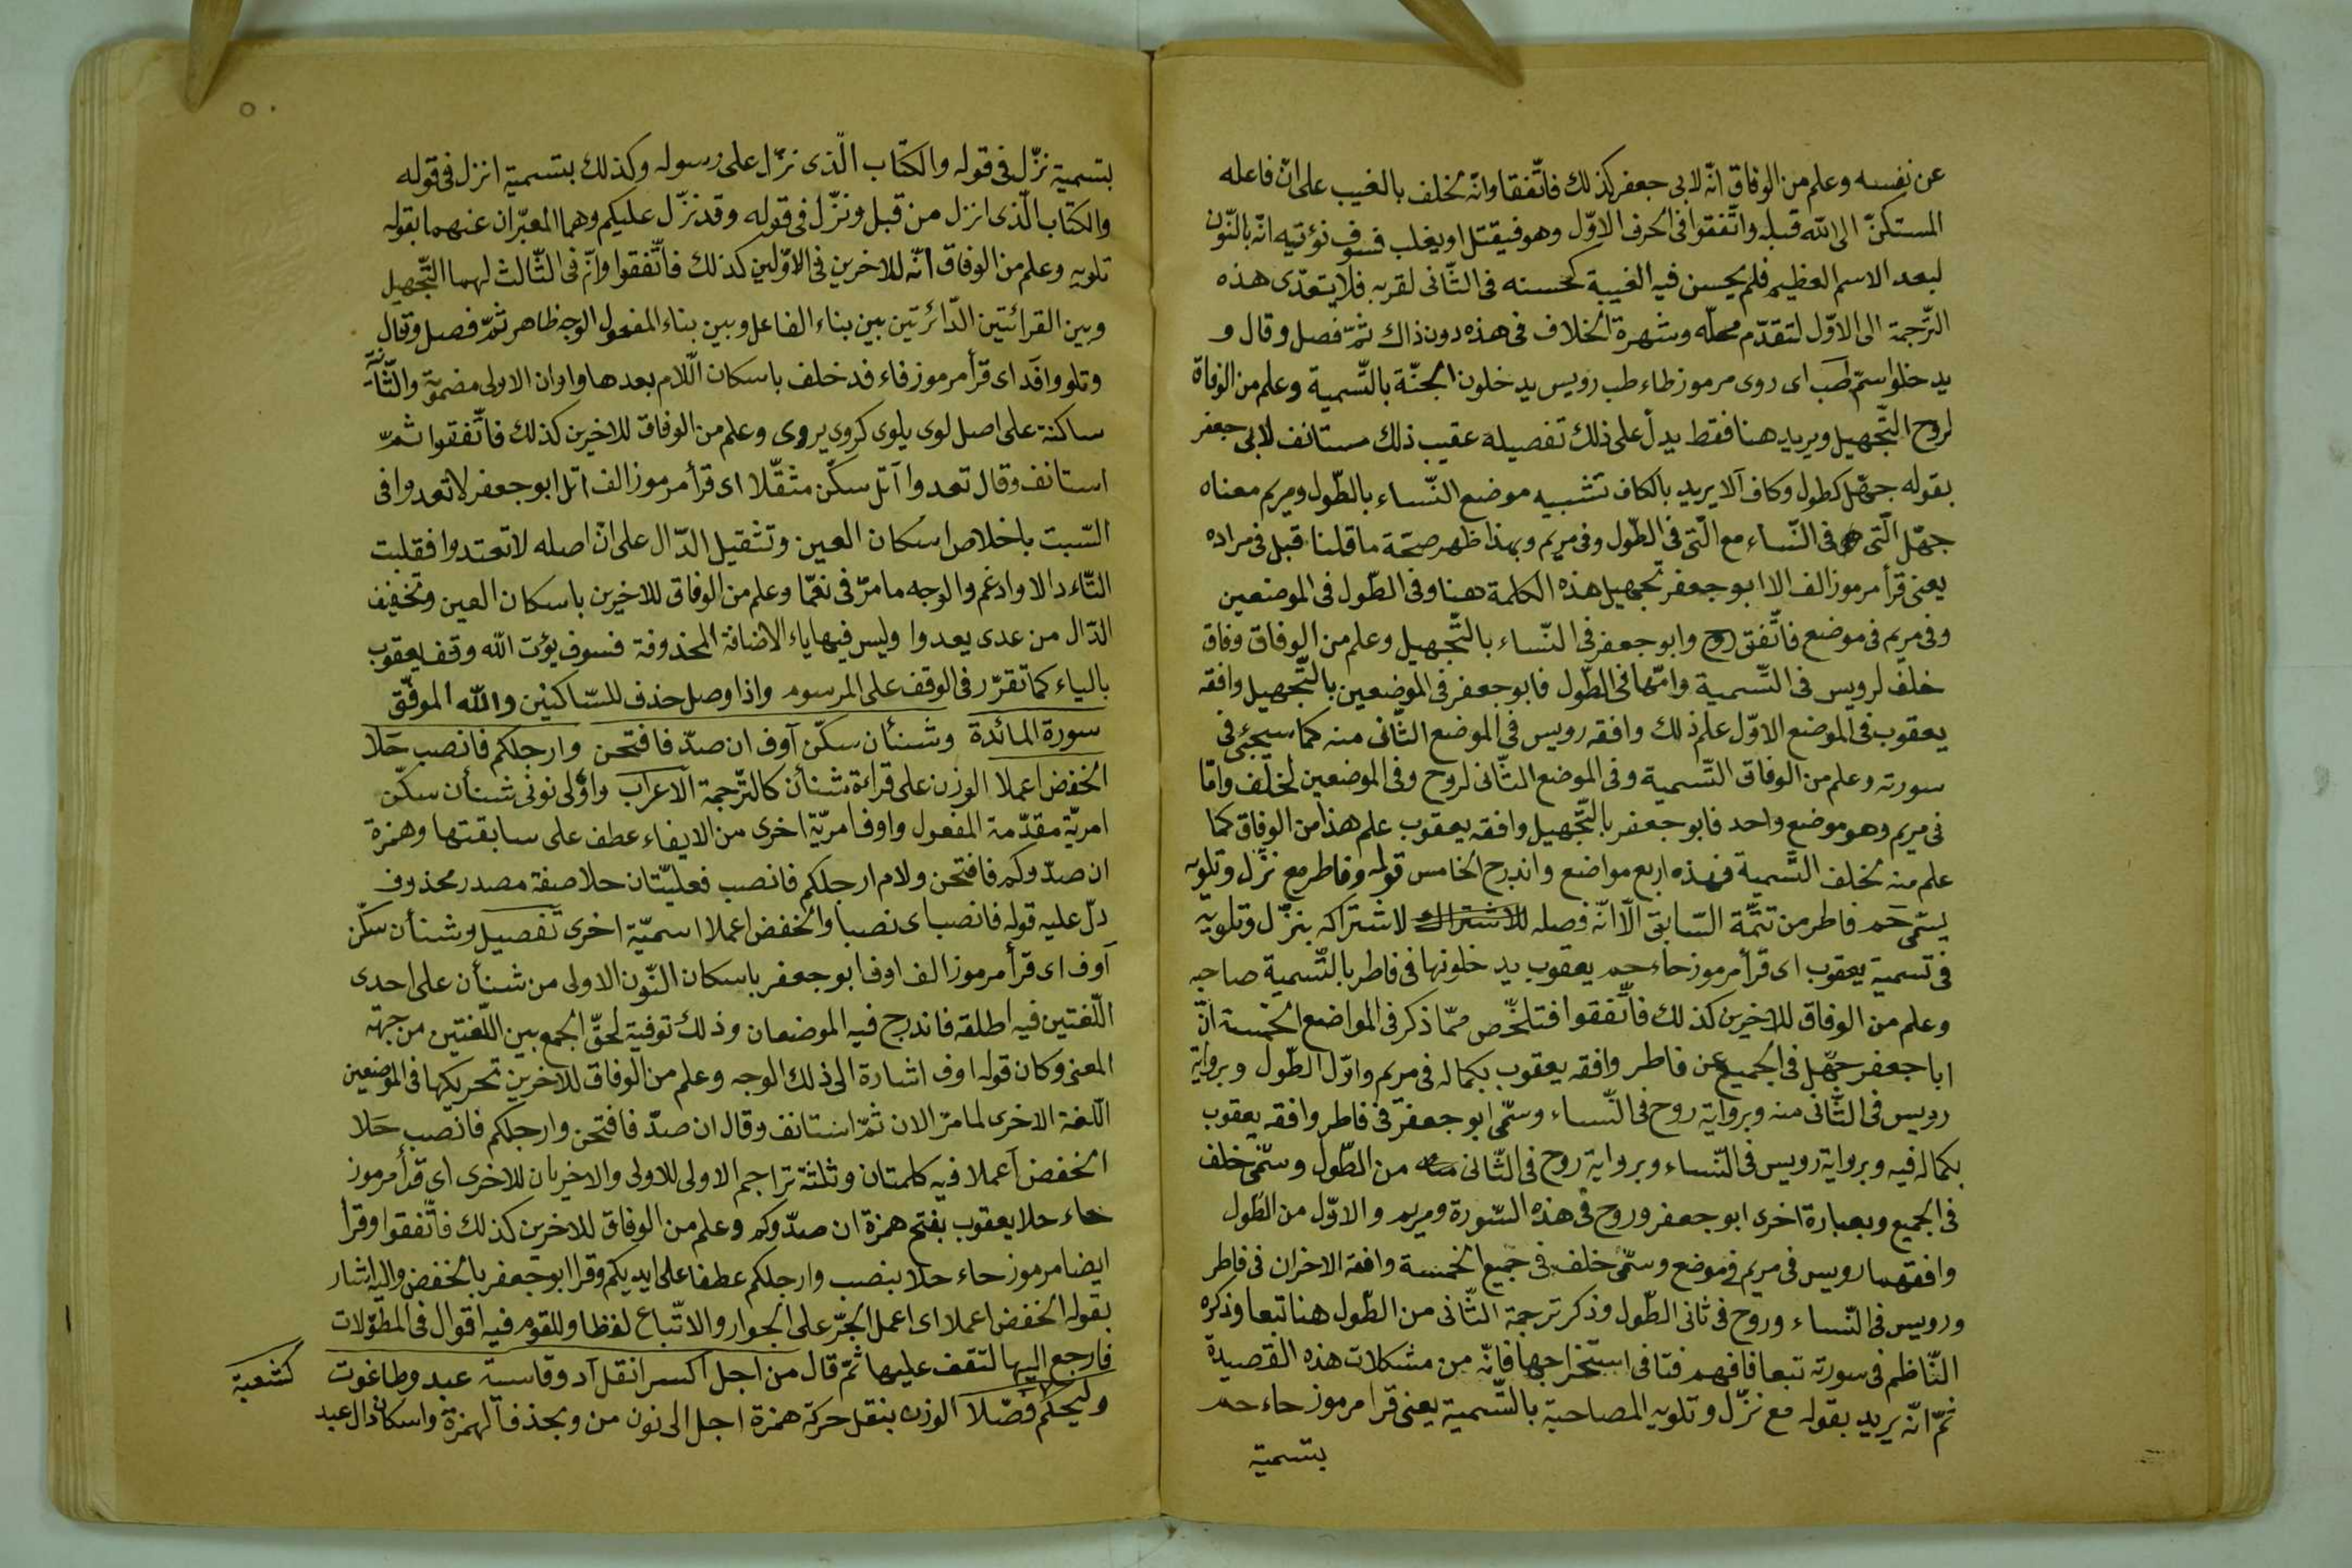 عن نفسه وعلم من الوفاق انّه لابى جعفر كذلك فاتّفقا وانّه لخلف بالغيب على انّ فاعله
المستكنّ الى الله قبله واتّفقوا فى الحرف الاوّل وهو فيقتل او يغلب فسوف نؤتيه انّه بالنّون
لبعد الاسم العظيم فلم يحسن فيه الغيبة كحسنه فى الثّانى لقربه فلا يتعدّى هذه
التّرجمة الى الاوّل لتقدّم محلّه وشهرة الخلاف فى هذه دون ذاك ثمّ فصل وقال و
يدخلوا سمّ طب اى روى مرموز طاء طب رويس يدخلون الجنّة بالتّسمية وعلم من الوفاق
لروح التّجهيل ويريد هنا فقط يدلّ على ذلك تفصيله عقيب ذلك مستانف لابى جعفر
بقوله جهّل كطول وكاف آلا يريد بالكاف تشبيه موضع النّساء بالطّول ومريم معناه
جهّل الّتى فى النّساء مع الّتى فى الطّول وفى مريم وبهذا ظهر صحّة ما قلنا قبل فى مراده
يعنى قرأ مرموز الف الا ابو جعفر تجهيل هذه الكلمة هنا وفى الطّول فى الموضعين
وفى مريم فى موضع فاتّفق روح وابو جعفر فى النّساء بالتّجهيل وعلم من الوفاق وفاق
خلف لرويس فى التّسمية وامّا فى الطّول فابو جعفر فى الموضعين بالتّجهيل وافقه
يعقوب فى الموضع الاوّل علم ذلك وافقه رويس فى الموضع الثّانى منه كما سيجئ فى
سورته وعلم من الوفاق التّسمية وفى الموضع الثّانى لروح وفى الموضعين لخلف وامّا
فى مريم وهو موضع واحد فابو جعفر بالتّجهيل وافقه يعقوب علم هذا من الوفاق كما
علم منه لخلف التّسمية فهذه اربع مواضع واندرج الخامس قوله وفاطر مع نزّل وتلويه
يسمّى حم فاطر من تتمّة السّابق الّا انّه فصله لاشتراكه بنزّل وتلويه
فى تسمية يعقوب اى قرأ مرموز حاء حم يعقوب يدخلونها فى فاطر بالتّسمية صاحبه
وعلم من الوفاق للاخيرين كذلك فاتّفقوا فتلخّص ممّا ذكر فى المواضع الخمسة انّ
ابا جعفر جهّل فى الجميع عن فاطر وافقه يعقوب بكماله فى مريم واوّل الطّول وبرواية
رويس فى الثّانى منه وبرواية روح فى النّساء وسمّى ابو جعفر فى فاطر وافقه يعقوب
بكماله فيه وبرواية رويس فى النّساء وبرواية روح فى الثّانى من الطّول وسمّى خلف
فى الجميع وبعبارة اخرى ابو جعفر وروح فى هذه السّورة ومريم والاوّل من الطّول
وافقهما رويس فى مريم فى موضع وسمّى خلف فى جميع الخمسة وافقه الاخران فى فاطر
ورويس فى النّساء وروح فى ثانى الطّول وذكر ترجمة الثّانى من الطّول هنا تبعا وذكره
النّاظم فى سورته تبعا فافهم فتا فى استخراجها فانّه من مشكلات هذه القصيدة
ثمّ انّه يريد بقوله مع نزّل وتلويه المصاحبة بالتّسمية يعنى قرأ مرموز حاء حم
بتسمية
بتسمية نزّل فى قوله والكتاب الّذى نزّل على رسوله وكذلك بتسمية انزل فى قوله
والكتاب الّذى انزل من قبل ونزّل فى قوله وقد نزّل عليكم وهما المعبّران عنهما بقوله
تلويه وعلم من الوفاق انّه للاخرين فى الاوّلين كذلك فاتّفقوا وانّه فى الثّالث لهما التّجهيل
وبين القرائتين الدّائرتين بين بناء الفاعل وبين بناء المفعول الوجه ظاهر ثمّ فصل وقال
وتلووا فد اى قرأ مرموز فاء فد خلف باسكان اللّام بعدها واوان الاولى مضمومة والثّانية
ساكنة على اصل لوى يلوى كروى يروى وعلم من الوفاق للاخرين كذلك فاتّفقوا ثمّ
استانف وقال تعدوا آتل سكّن مثقّلا اى قرأ مرموز الف اتل ابو جعفر لا تعدوا فى
السّبت باخلاص اسكان العين وتثقيل الدّال على انّ اصله لا تعتدوا فقلبت
التّاء دالا وادغم والوجه ما مرّ فى نعمّا وعلم من الوفاق للاخيرين باسكان العين وتخفيف
الدّال من عدى يعدوا وليس فيها ياء الاضافة المحذوفة فسوف يؤت الله وقف يعقوب
بالياء كما تقرّر فى الوقف على المرسوم واذا وصل حذف للسّاكنين والله الموفّق
سورة المائدة وشنأن سكّن آوف ان صدّ فافتحن وارجلكم فانصب حَلا
الخفض اعملا الوزن على قراءة شنأن كالتّرجمة الاعراب واوّلى نونى شنأن سكّن
امريّة مقدّمة المفعول واوف امريّة اخرى من الايفاء عطف على سابقتها وهمزة
ان صدّوكم فافتحن ولام ارجلكم فانصب فعليّتان حلا صفة مصدر محذوف
دلّ عليه قوله فانصب اى نصبا والخفض اعملا اسميّة اخرى تفصيل وشنأن سكّن
آوف اى قرأ مرموز الف اوف ابو جعفر باسكان النّون الاولى من شنأن على احدى
اللّغتين فيه اطلقه فاندرج فيه الموضعان وذلك توفية لحقّ الجمع بين اللّغتين من جهة
المعنى وكان قوله اوف اشارة الى ذلك الوجه وعلم من الوفاق للاخرين تحريكها فى الموضعين
اللّغة الاخرى لما مرّ الان ثمّ استانف وقال ان صدّ فافتحن وارجلكم فانصب حَلا
الخفض آعملا فيه كلمتان وثلثة تراجم الاولى للاولى والاخريان للاخرى اى قرأ مرموز
حاء حلا يعقوب بفتح همزة ان صدّوكم وعلم من الوفاق للاخرين كذلك فاتّفقوا وقرأ
ايضا مرموز حاء حلا بنصب وارجلكم عطفا على ايديكم وقرا ابو جعفر بالخفض واليه اشار
بقوله الخفض اعملا اى اعمل الجرّ على الجوار والاتّباع لفظا وللقوم فيه اقوال فى المطوّلات
فارجع اليها لتقف عليها ثمّ قال من اجل اكسر انقل آد وقاسية عبد وطاغوت
وليحكم
كشعبة
فصّلا الوزن بنقل حركة همزة اجل الى نون من وبحذف الهمزة واسكان دال عبد